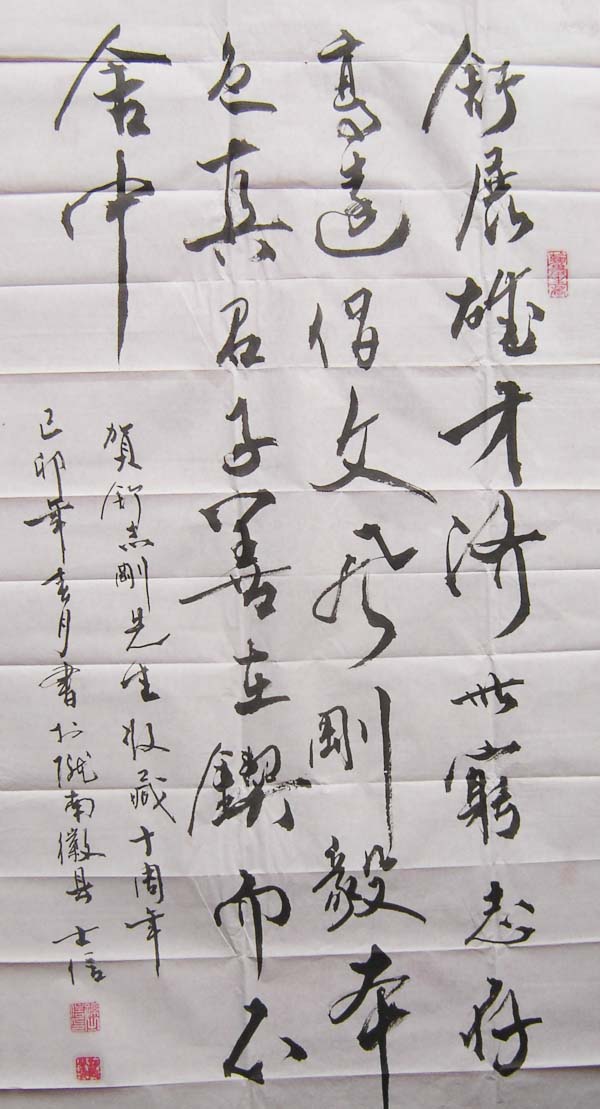 舒展雄才济世窮志存
高遠倡文风剛毅本
色真君子善在鍥而不
舍中
賀舒志剛先生收藏十周年
己卯年春月書於陇南徽县 士信